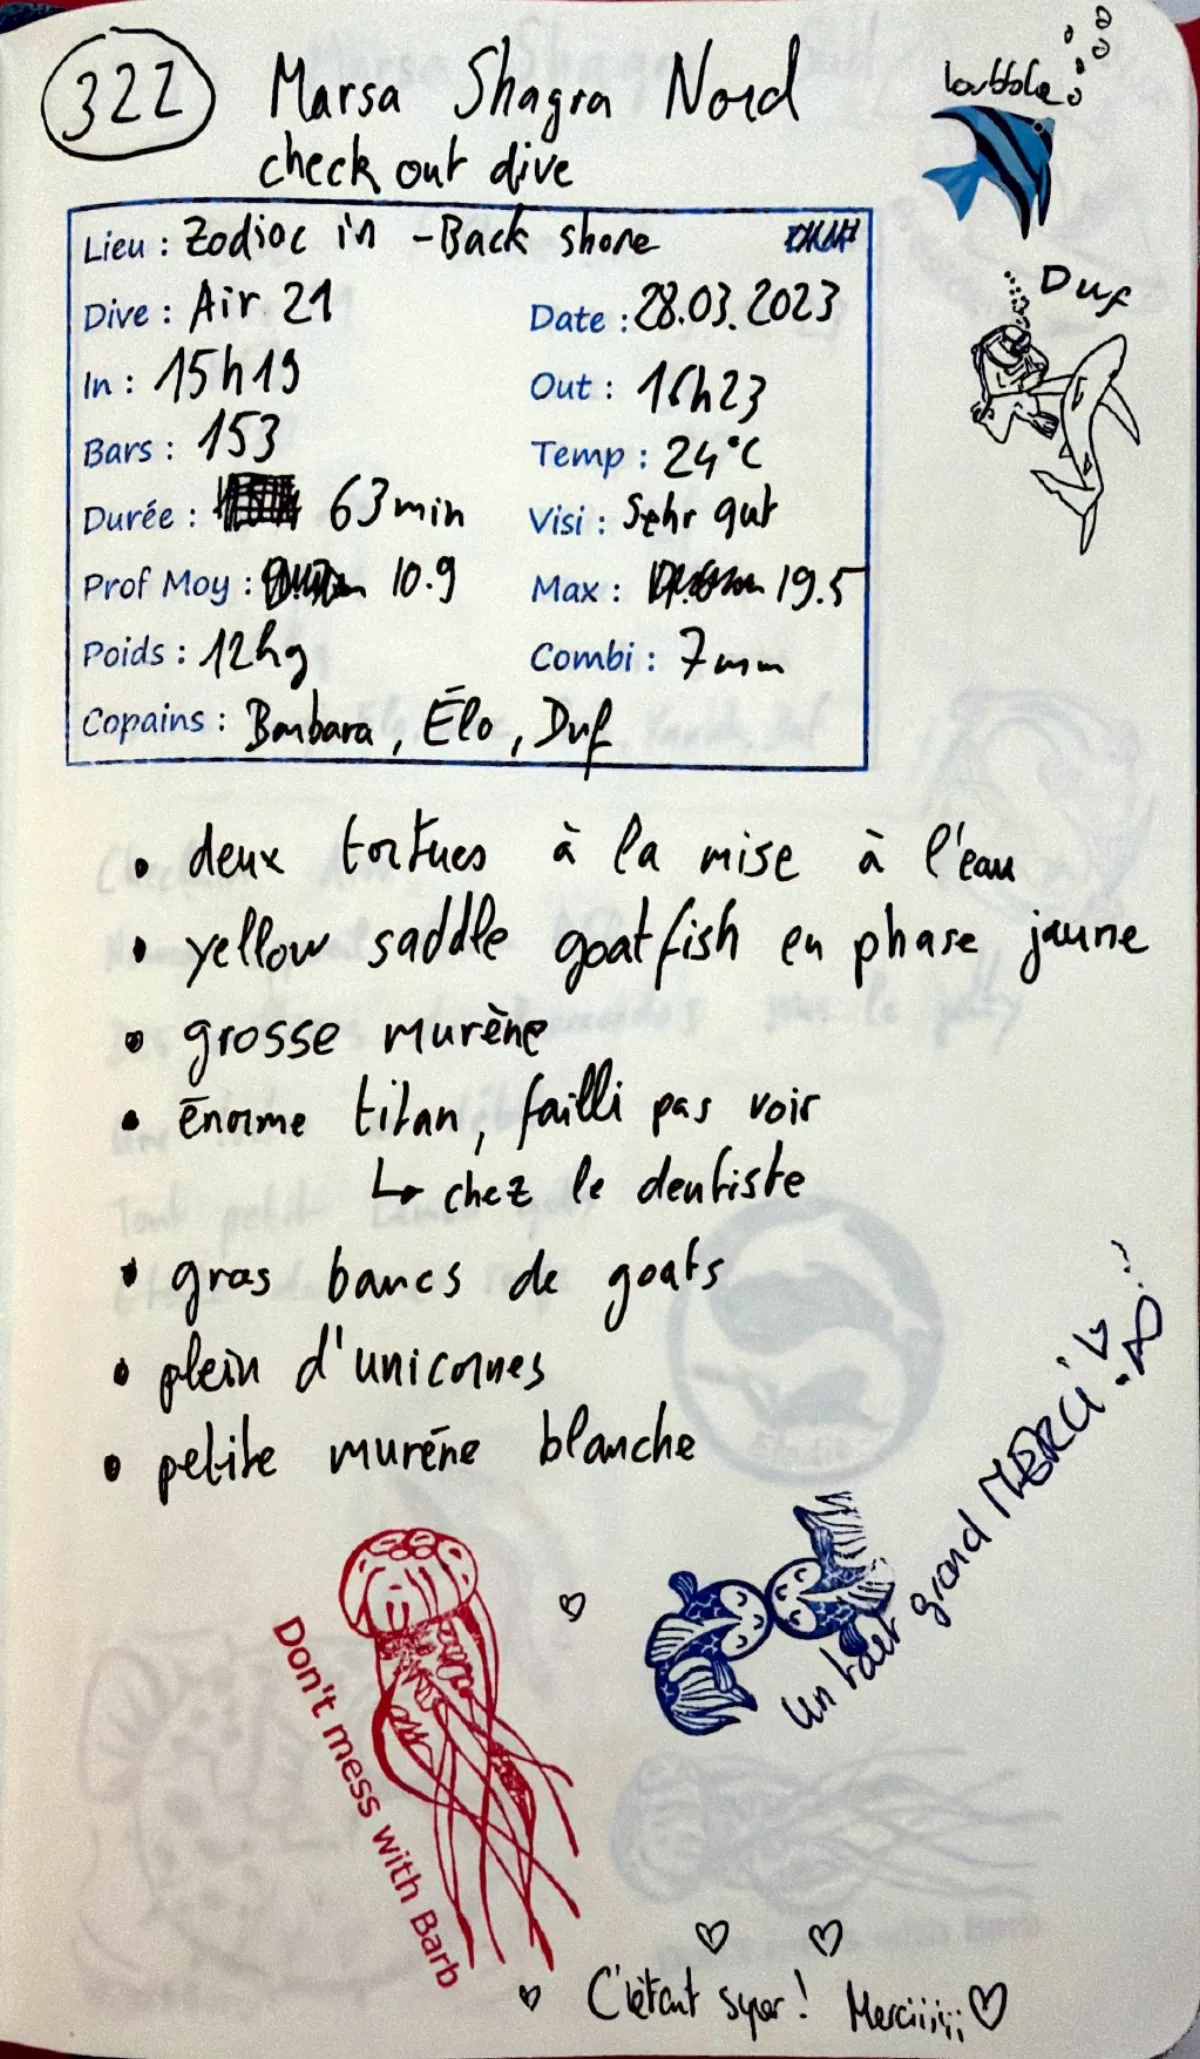 322 Marsa Shagra Nord
check out dive
Lieu : Zodiac in - Back shore
Dive : Air 21 Date : 28.03.2023
In : 15h19 Out : 16h23
Bars : 153 Temp : 24°C
Durée : 63min Visi : Sehr gut
Prof Moy : 10.9 Max : 19.5
Poids : 12kg Combi : 7mm
Copains : Barbara, Élo, Duf
Duf
• deux tortues à la mise à l'eau
• yellow saddle goatfish en phase jaune
• grosse murène
• énorme titan, failli pas voir
↳ chez le dentiste
• gros bancs de goats
• plein d'unicornes
• petite murène blanche
Don't mess with Barb
un tout grand MERCI
C'était super! Merciiiiii ♡